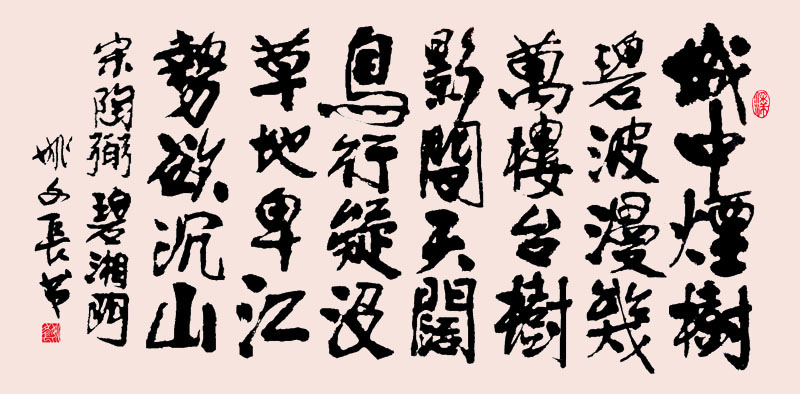 城中煙樹
碧波漫幾
萬樓台樹
影間天闊
鳥行疑没
草地卑江
勢欲沉山
宋陶弼碧湘門
姚文長